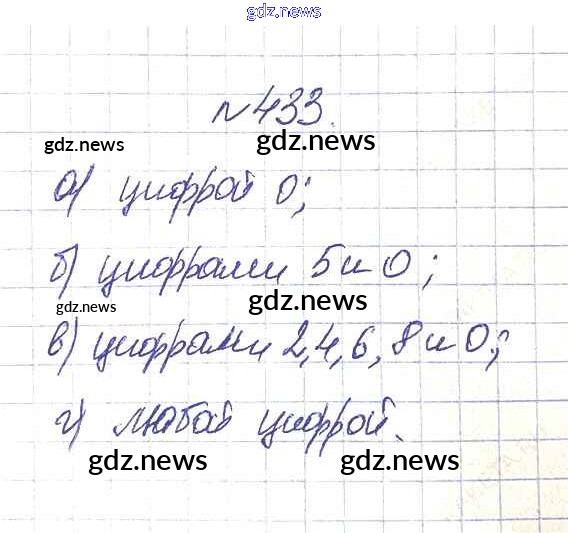 gdz.news
№433.
gdz.news
gdz.news
а) цифрой 0;
б) цифрами 5 и 0;
gdz.news
gdz.news
в) цифрами 2,4,6,8 и 0;
г) любой цифрой.
gdz.news
gdz.news